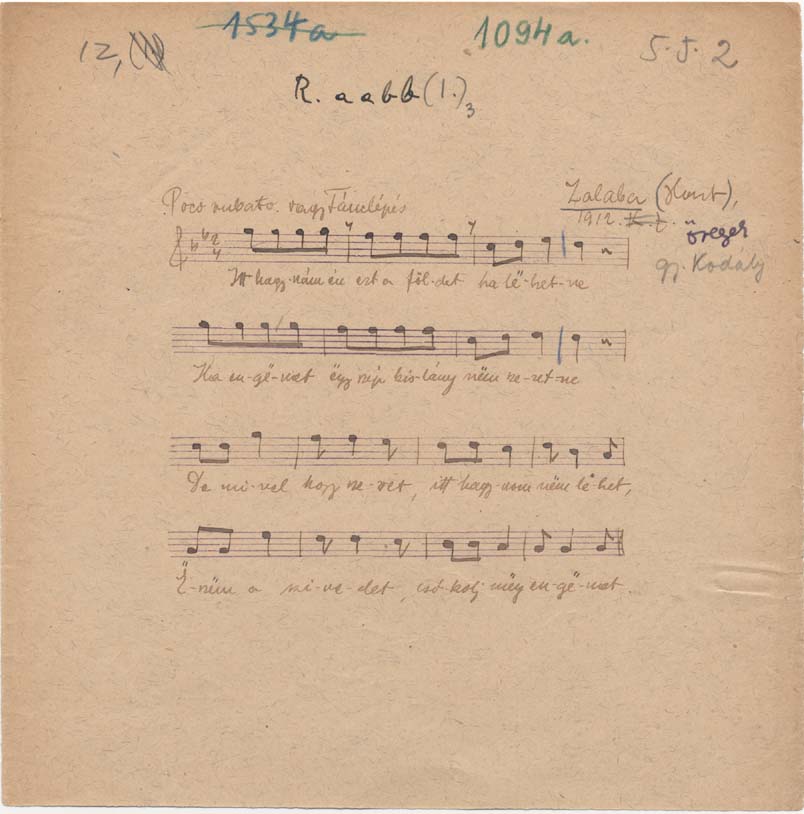 12, 1534a 1094a. 5.5.2
R. aabb(1.)3
Poco rubato. vagy Tánclépés
Zalaba (Hont),
1912.
öregek
gy. Kodály
2
4
Itt hagy-nám én ezt a föl-det ha lë-het-ne
Ha en-gë-met ëgy szép kis-lány nëm sze-ret-ne
De mi-vel hogy sze-ret, itt hagy-nom nëm lë-het,
É-nëm a szi-ve-det, csó-kolj mëg en-gë-met.